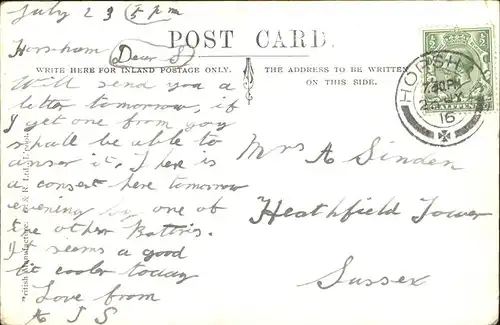 July 23 5 pm
Horsham Dear S
POST CARD.
WRITE HERE FOR INLAND POSTAGE ONLY.
THE ADDRESS TO BE WRITTEN
ON THIS SIDE.
Will send you a
letter tomorrow, if
I get one from you
shall be able to
anser it. There is
a consert here tomorrow
evening by one of
the other Battris.
It seems a good
bit cooler today
Love from
A J S
Mrs A Sinden
Heathfield Tower
Sussex
HORSHAM
7.30 PM
16
HALFPENNY
British Manufacture